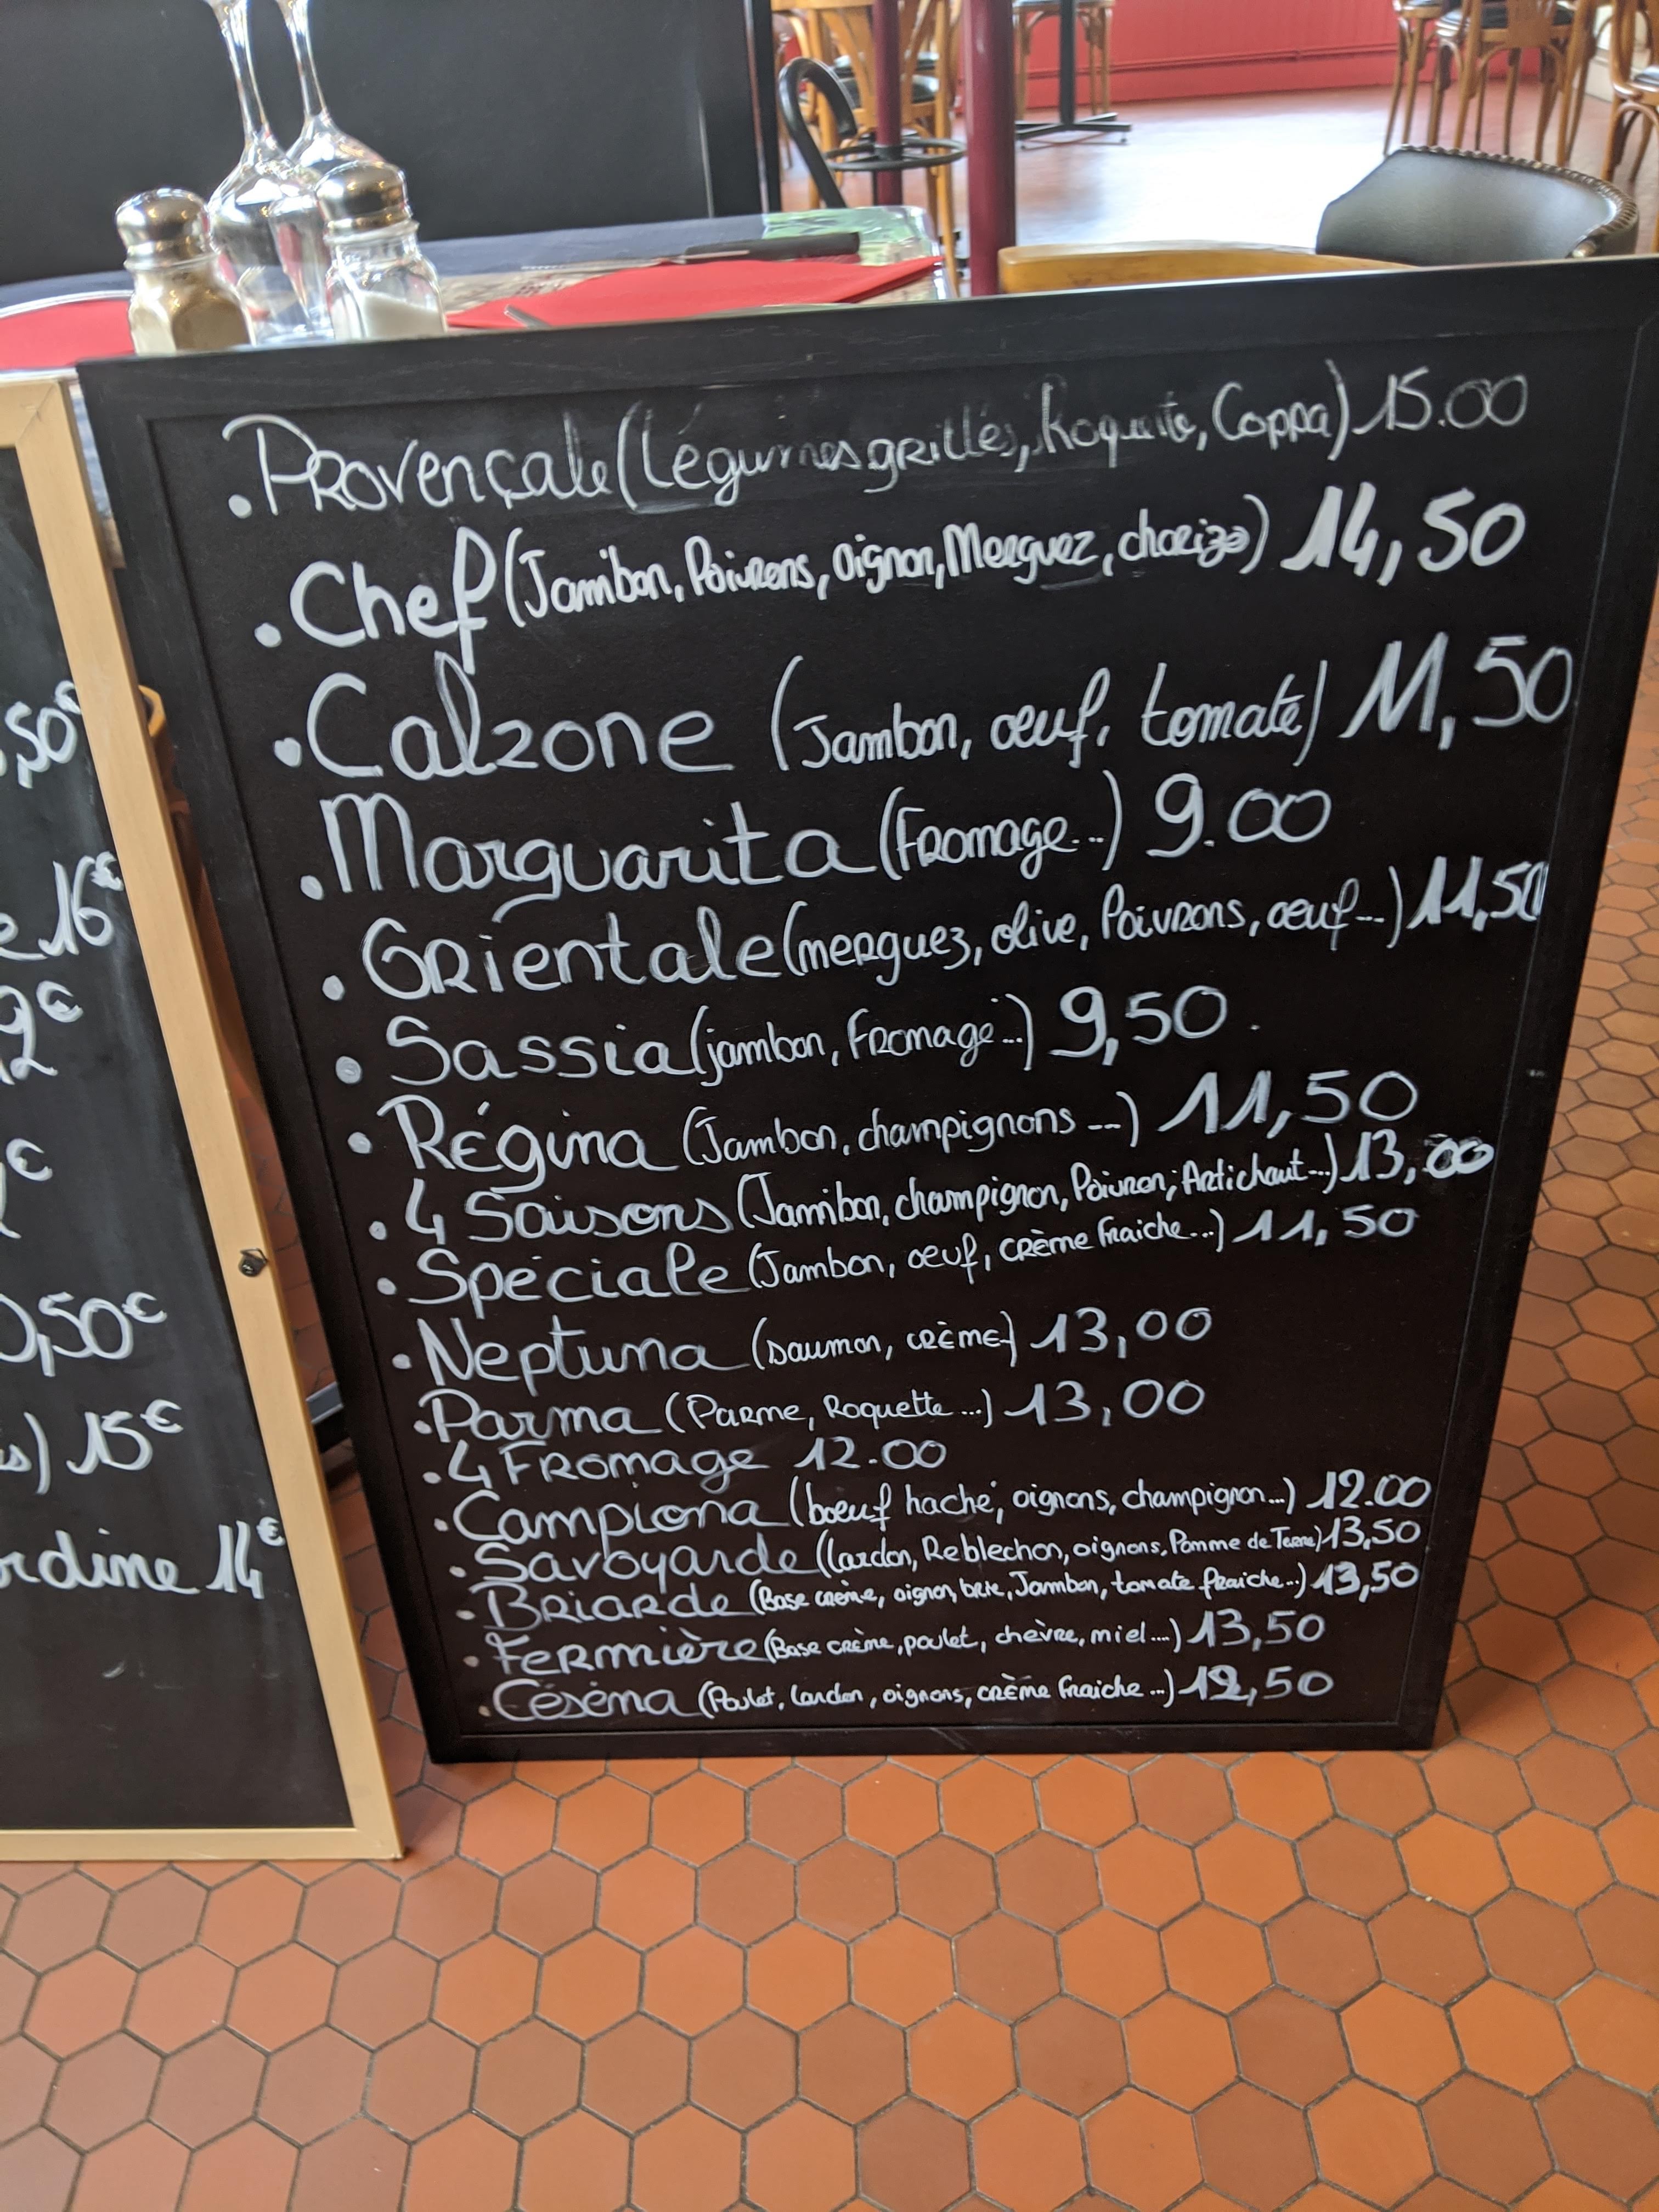 . Provençale (Légumes grillés, Roquette, Coppa) 15.00
. Chef (Jambon, Poivrons, oignon, Merguez, chorizo) 14,50
. Calzone (Jambon, œuf, tomate) 11,50
. Marguarita (Fromage...) 9.00
. Orientale (merguez, olive, Poivrons, œuf...) 11,50
. Sassia (jambon, Fromage...) 9,50
. Régina (Jambon, champignons ...) 11,50
. 4 Saisons (Jambon, champignon, Poivron, Artichaut...) 13,00
. Spéciale (Jambon, oeuf, crème fraiche...) 11,50
. Neptuna (saumon, crème) 13,00
. Parma (Parme, Roquette ...) 13,00
. 4 Fromage 12.00
. Campiona (bœuf haché, oignons, champignon...) 12.00
. Savoyarde (lardon, Reblechon, oignons, Pomme de Terre) 13,50
. Briarde (Base crème, oignon, brie, Jambon, tomate fraiche...) 13,50
. Fermière (Base crème, poulet, chèvre, miel....) 13,50
. Céséna (Poulet, lardon, oignons, crème fraiche ...) 12,50
,50€
e 16€
9€
12
€
0,50€
is) 15€
rdine 14€